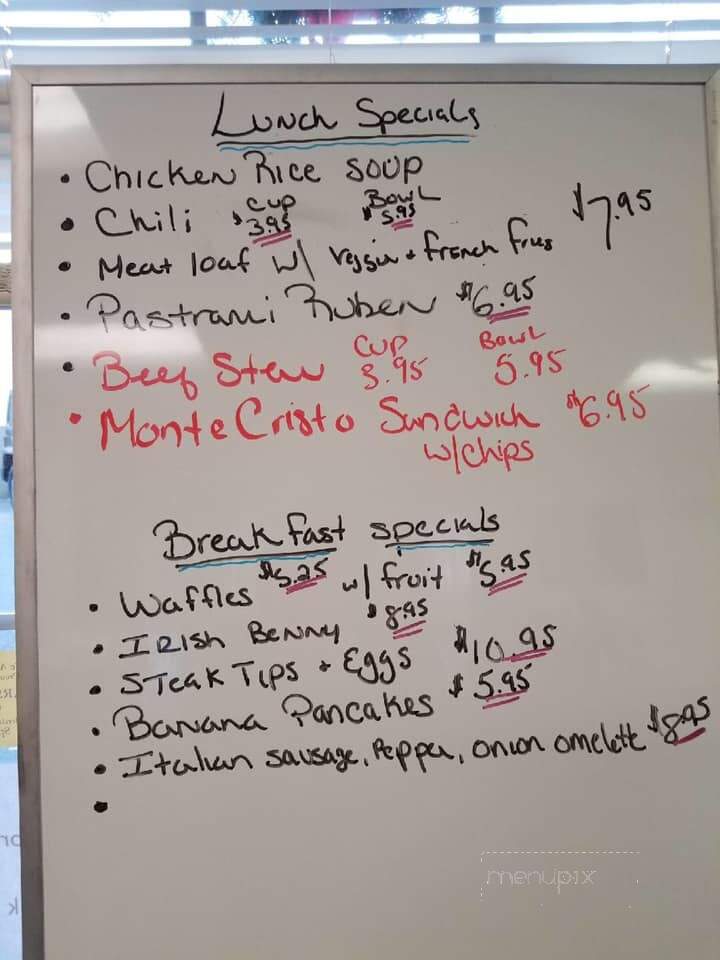 Lunch Specials
• Chicken Rice soup
• Chili Cup $3.95 Bowl $5.95
• Meat loaf w/ Veggie + french fries $7.95
• Pastrami Ruben $6.95
• Beef Stew Cup 3.95 Bowl 5.95
• Monte Cristo Sandwich $6.95
w/chips
Breakfast specials
• Waffles $5.25 w/ fruit $5.95
• Irish Benny $8.95
• Steak Tips + Eggs $10.95
• Banana Pancakes $5.95
• Italian sausage, Pepper, onion omelette $8.95
•
menupix